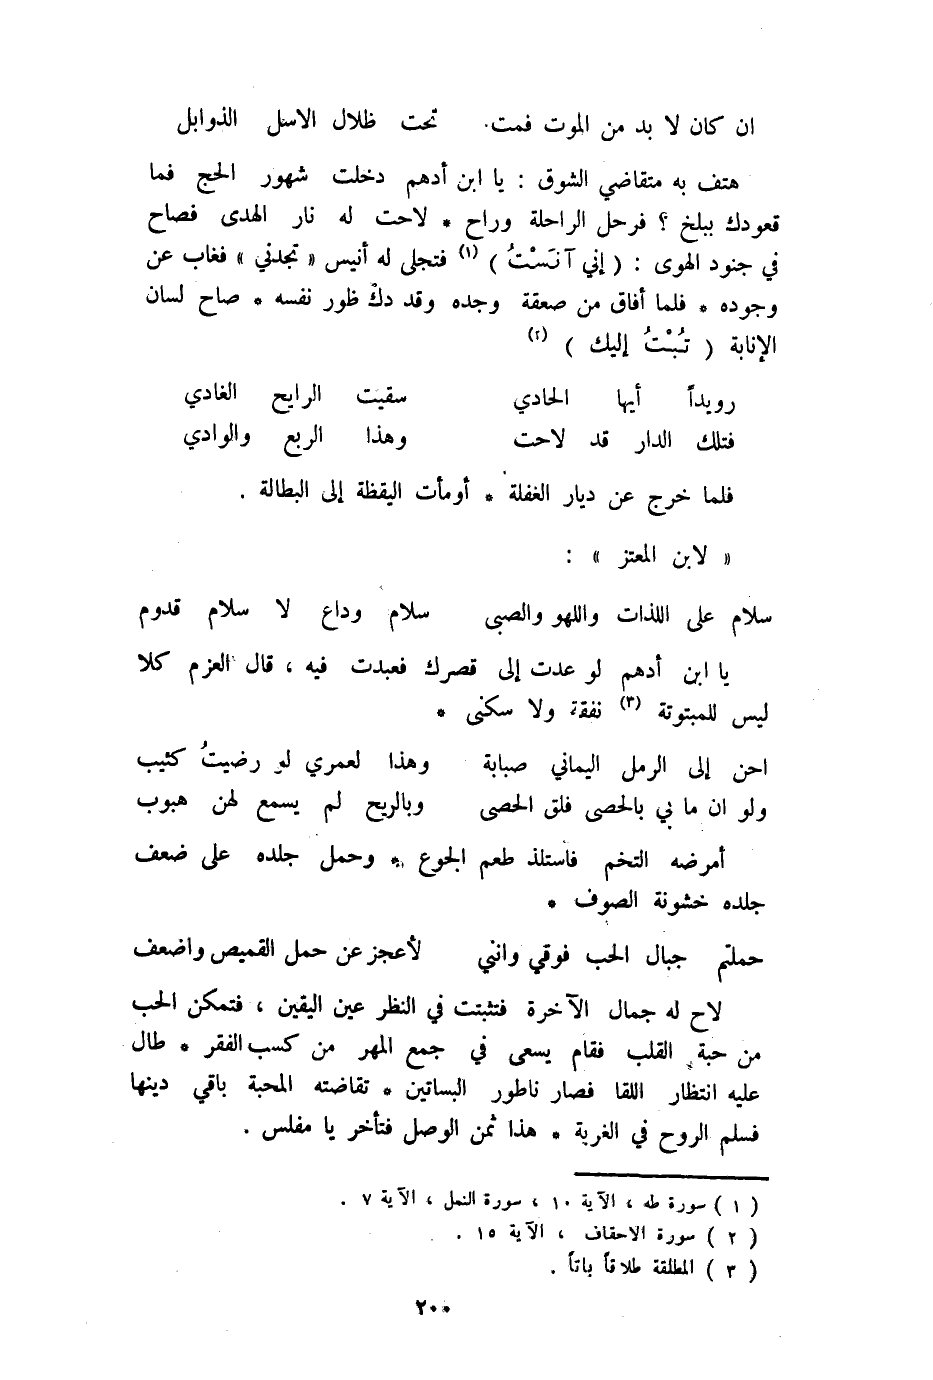 ان كان لا بد من الموت فمت. تحت ظلال الاسل الذوابل
هتف به متقاضي الشوق : يا ابن أدهم دخلت شهور الحج فما
قعودك ببلخ ؟ فرحل الراحلة وراح * لاحت له نار الهدى فصاح
في جنود الهوى : ( إني آنَسْتُ ) (١) فتجلى له أنيس « تجدني » فغاب عن
وجوده * فلما أفاق من صعقة وجده وقد دكْ طور نفسه * صاح لسان
الإنابة ( تُبْتُ إليك ) (٢)
رويداً أيها الحادي سقيت الرايح الغادي
فتلك الدار قد لاحت وهذا الربع والوادي
فلما خرج عن ديار الغفلة * أومأت اليقظة إلى البطالة .
« لابن المعتز » :
سلام على اللذات واللهو والصبى سلام وداع لا سلام قدوم
يا ابن أدهم لو عدت إلى قصرك فعبدت فيه ، قال العزم كلا
ليس للمبتوتة (٣) نفقة ولا سكنى *
احن إلى الرمل اليماني صبابة وهذا لعمري لو رضيتُ كثيب
ولو ان ما بي بالحصى فلق الحصى وبالريح لم يسمع لهن هبوب
أمرضه التخم فاستلذ طعم الجوع * وحمل جلده على ضعف
جلده خشونة الصوف *
حملتم جبال الحب فوقي وانني لأعجز عن حمل القميص واضعف
لاح له جمال الآخرة فتثبتت في النظر عين اليقين ، فتمكن الحب
من حبة القلب فقام يسعى في جمع المهر من كسب الفقر * طال
عليه انتظار اللقا فصار ناطور البساتين * تقاضته المحبة باقي دينها
فسلم الروح في الغربة * هذا ثمن الوصل فتأخر يا مفلس .
( ١ ) سورة طه ، الآية ١٠ ، سورة النمل ، الآية ٧ .
( ٢ ) سورة الاحقاف ، الآية ١٥ .
( ٣ ) المطلقة طلاقاً باتاً .
٢٠٠